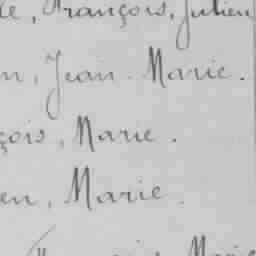 le, François, Julien
n, Jean Marie.
çois, Marie.
en, Marie.
François Marie